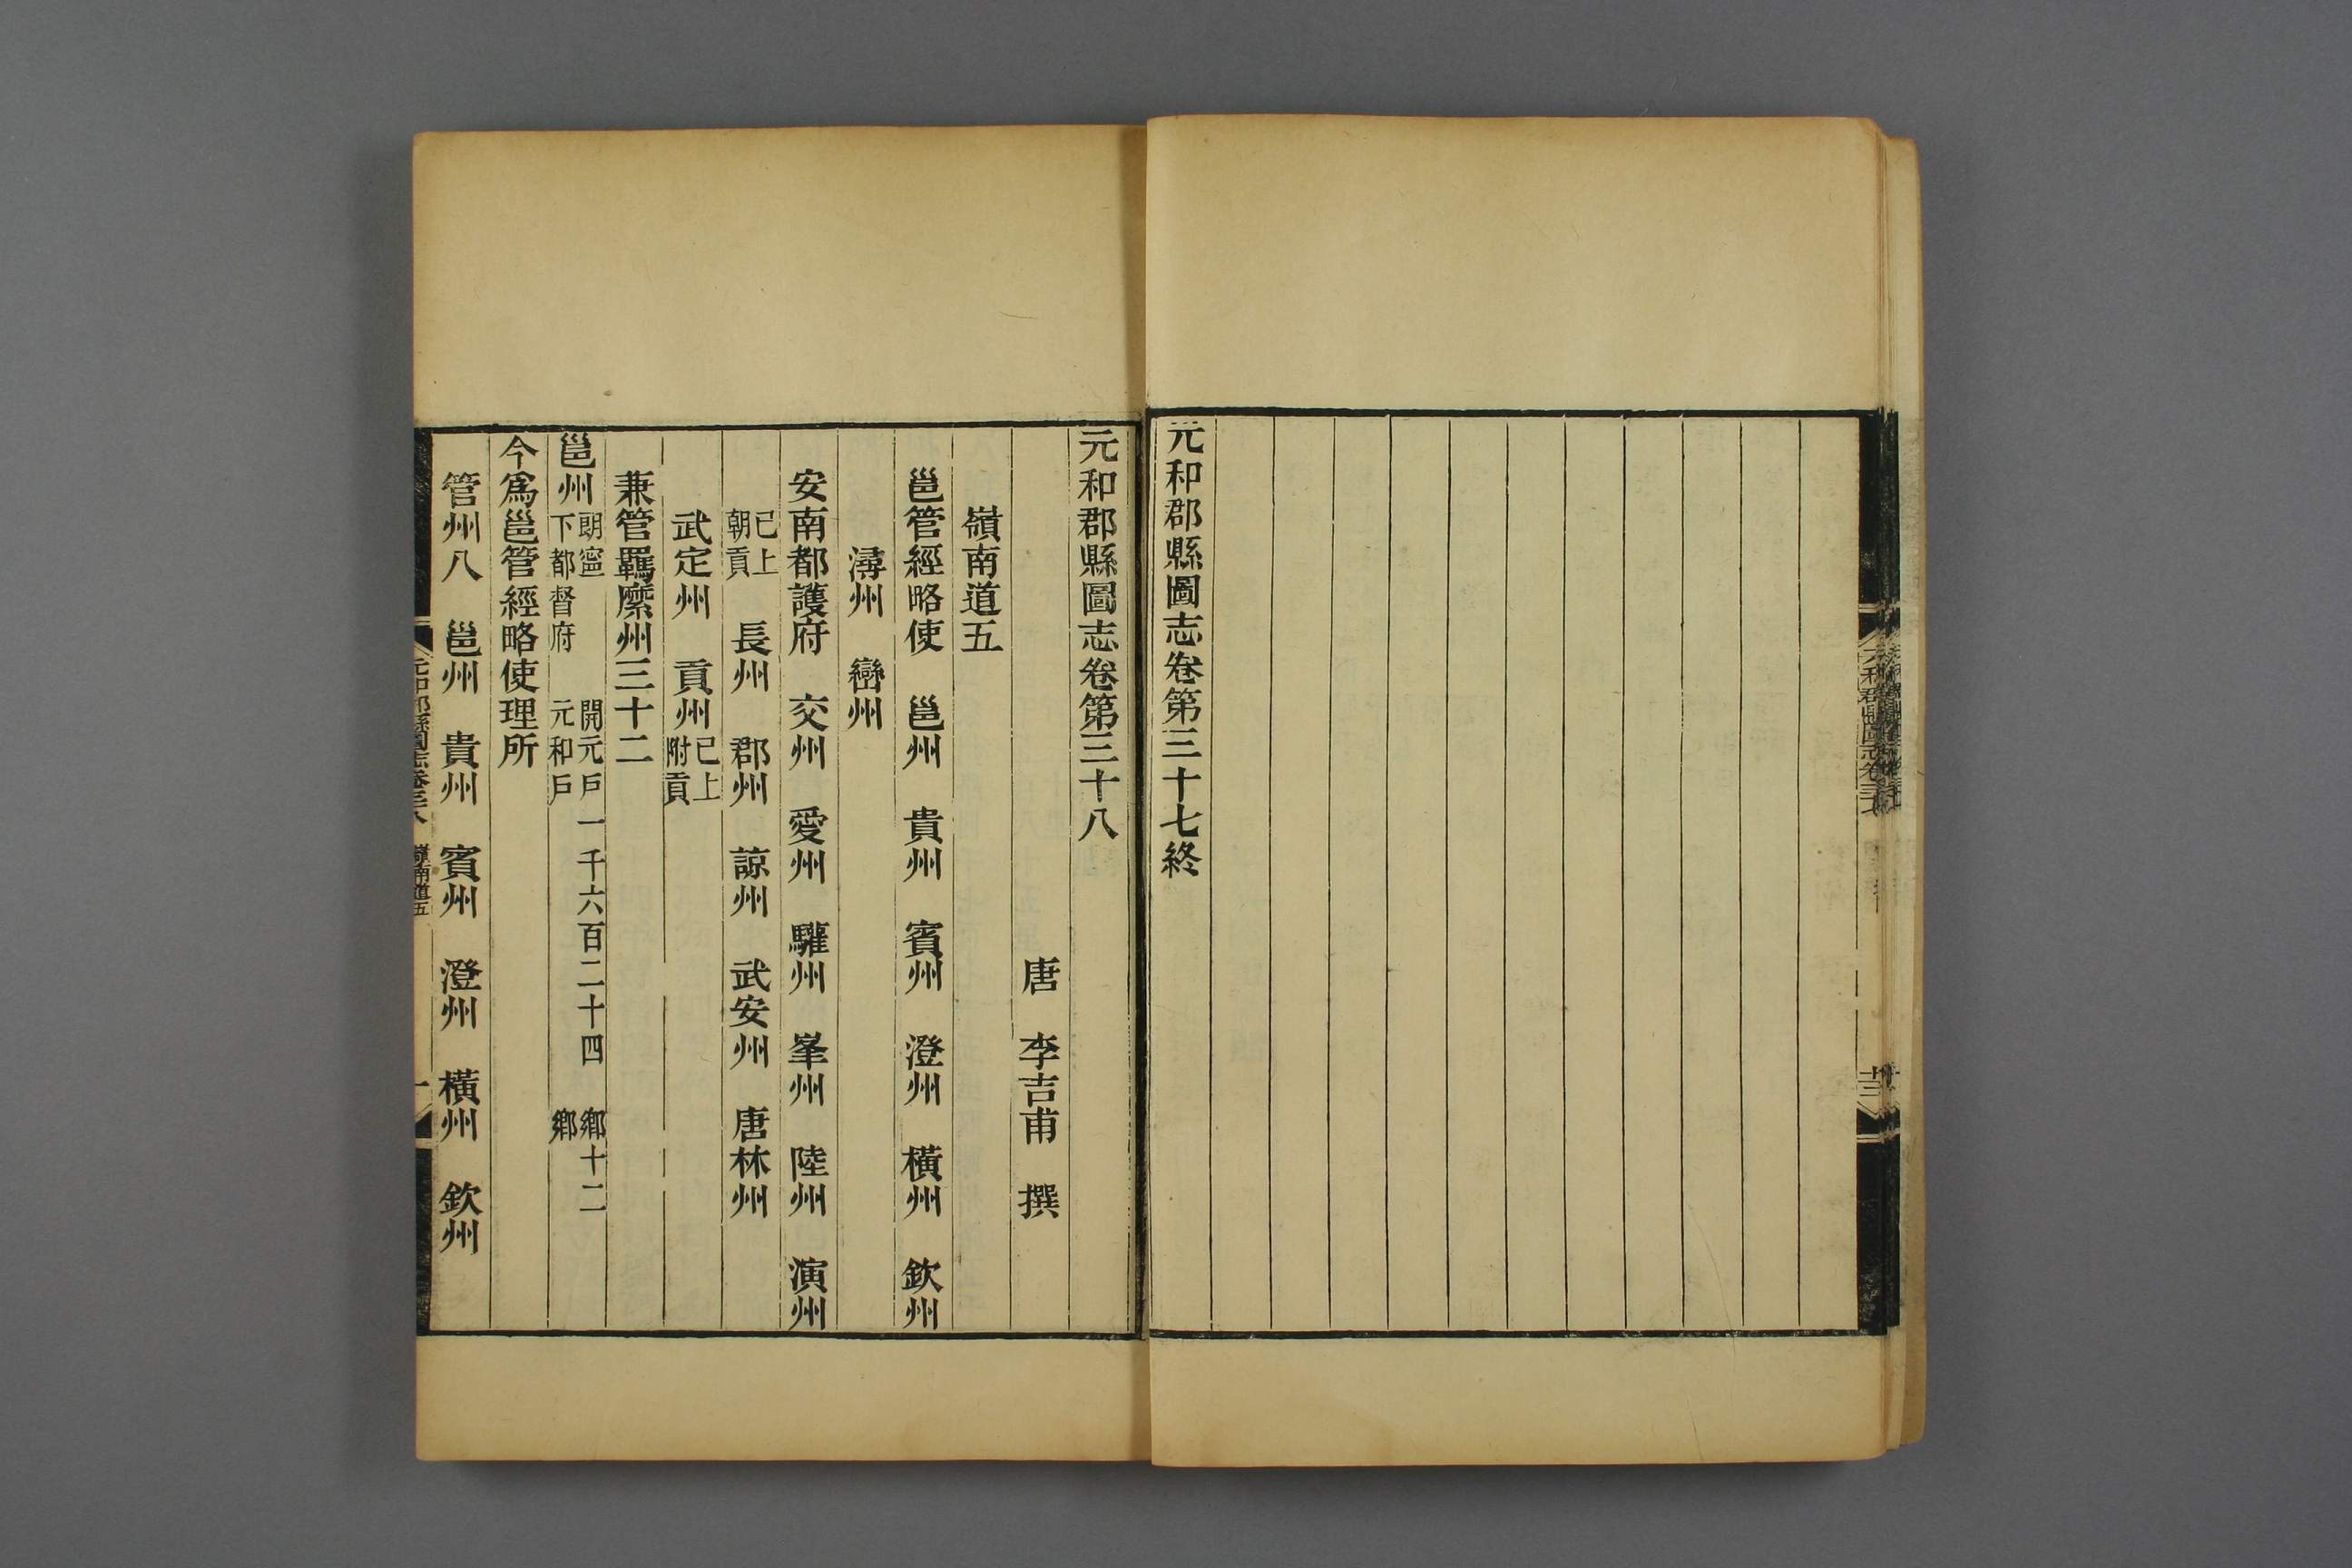 元和郡縣圖志卷第三十七終
元和郡縣圖志卷第三十八
唐 李吉甫 撰
嶺南道五
邕管經略使 邕州 貴州 賓州 澄州 橫州 欽州
潯州 巒州
安南都護府 交州 愛州 驩州 峯州 陸州 演州
已上朝貢 長州 郡州 諒州 武安州 唐林州
武定州 貢州 已上附貢
兼管羈縻州三十二
邕州 朗寧 下都督府 開元戶一千六百二十四 鄉十二 元和戶 鄉
今爲邕管經略使理所
管州八 邕州 貴州 賓州 澄州 橫州 欽州
元和郡縣圖志卷三十八 嶺南道五 一